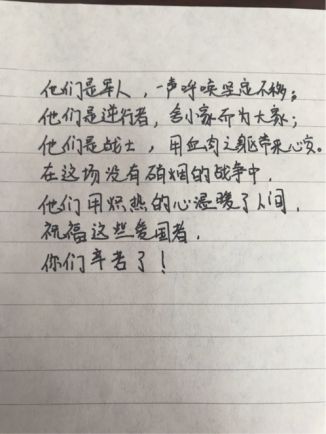 他们是军人，一声呼唤坚定不移；
他们是逆行者，舍小家而为大家；
他们是战士，用血肉之躯带来心安。
在这场没有硝烟的战争中，
他们用炽热的心温暖了人间，
祝福这些爱国者，
你们辛苦了！